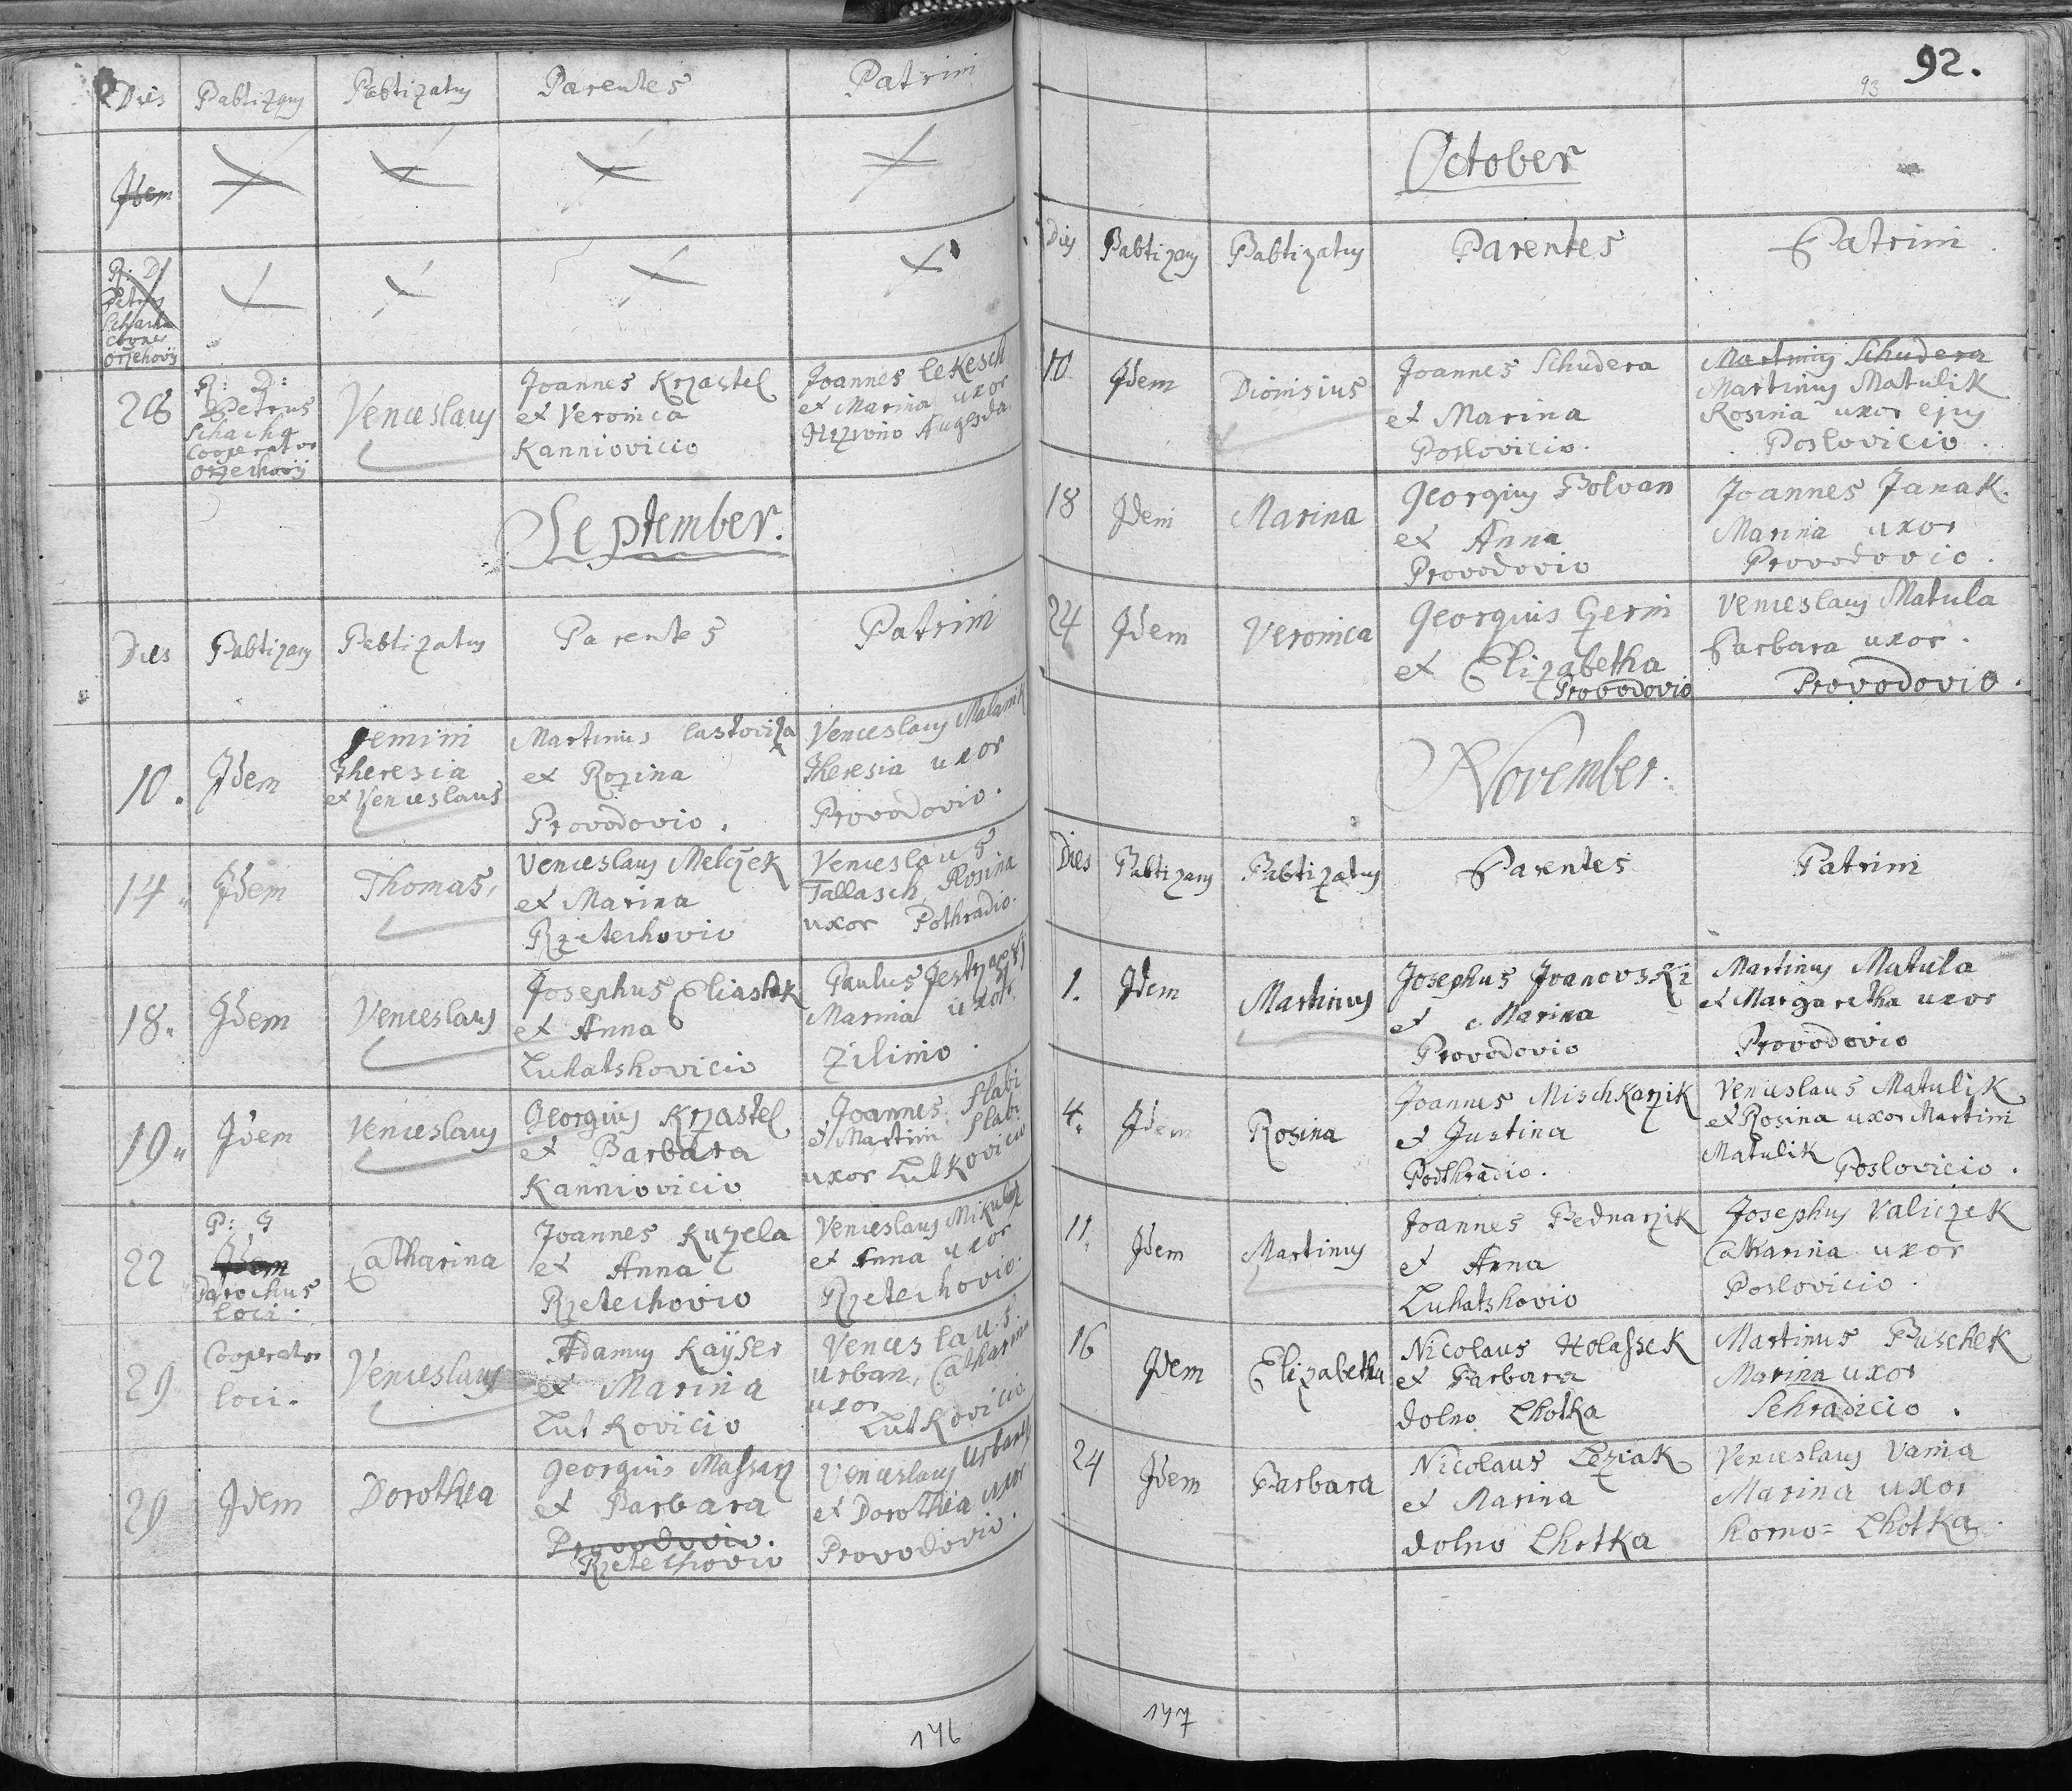 Dies Pabtizans Pabtizatus Parentes Patrini
Idem
R: D:
Petrus
Schacha
Cooper
Orzehovij
28
R: D:
Petrus
Schacha
Cooperator
Orzechovij
Venceslaus
Joannes Krzastel
et Veronica
Kanniovicio
Joannes Lekesch
et Marina uxor
September.
Dies Pabtizans Pabtizatus Parentes Patrini
10.
Idem
Gemini
Theresia
et Venceslaus
Martinus Lastoviza
et Rozina
Provodovio.
Venceslaus Malanik
Theresia uxor
Provodovio.
14
Idem
Thomas,
Venceslaus Melczek
et Marina
Rzetechovio
Venceslaus
Tallasch, Rosina
uxor Pothradio.
18.
Idem
Venceslaus
Josephus Eliashek
et Anna
Luhatshovicio
Paulus
Marina uxor
Zilimo.
19
Idem
Venceslaus
Georgius Krzastel
et Barbara
Kanniovicio
Joannes Slabi
et Martini Slabi
uxor Lutkovicio
22
P: J
Idem
Parochus
loci.
Catharina
Joannes Kuzela
et Anna
Rzetechovio
Venceslaus
et Anna uxor
Rzetechovio.
29
Cooperator
loci.
Venceslaus
Adamus Kaÿser
et Marina
Lutkovicio
Venceslaus
Urban, Catharina
uxor
Lutkovicio
29
Idem
Dorothea
Georgius Massarz
et Barbara
Provodovio.
Rzetechovio
Venceslaus Urbanes
et Dorothea uxor
Provodovio.
146
92.
93
October
Dies Pabtizans Pabtizatus Parentes Patrini
10
Idem
Dionisius
Joannes Schudera
et Marina
Poslovicio.
Martinus Schudera
Martinus Matulik
Rosina uxor ejus
Poslovicio.
18
Idem
Marina
Georgius Polvan
et Anna
Provodovio
Joannes Janak.
Marina uxor
Provodovio.
24
Idem
Veronica
Georgius Gerni
et Elizabetha
Provodovio
Venceslaus Matula
Barbara uxor.
Provodovio.
November.
Dies Pabtizans Pabtizatus Parentes Patrini
1.
Idem
Martinus
Josephus Ivanovski
et Marina
Provodovio
Martinus Matula
et Margaretha uxor
Provodovio
4.
Idem
Rosina
Joannes Mischkarzik
et Justina
Podhradio.
Venceslaus Matulik
et Rosina uxor Martini
Matulik Poslovicio.
11.
Idem
Martinus
Joannes Bednarzik
et Anna
Luhatshovio
Josephus Valiczek
Catharina uxor
Poslovicio.
16
Idem
Elizabetha
Nicolaus Holassek
et Barbara
dolno Lhotka
Martinus Puschek
Marina uxor
Sehradicio.
24
Idem
Barbara
Nicolaus Leziak
et Marina
dolno Lhotka
Venceslaus Vania
Marina uxor
Horno= Lhotka.
147